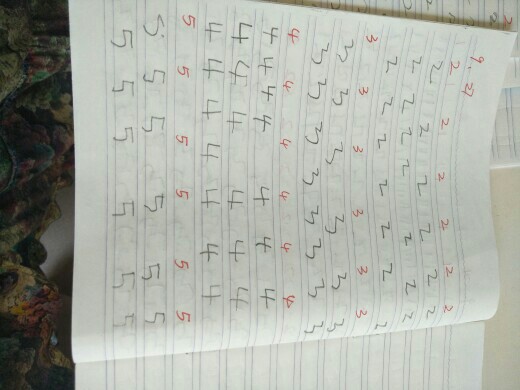 2 2 2 2 2 2
2 2 2 2 2 2
2 2 2 2 2 2 2
2 2 2 2 2 2 2
3 3 3 3 3 3
3 3 3 3 3 3
3 3 3 3 3 3 3 3
4 4 4 4 4 4
4 4 4 4 4 4 4
4 4 4 4 4 4
4 4 4 4 4 4 4
5 5 5 5 5 5
5 5 5 5 5 5
5 5 5 5 5 5